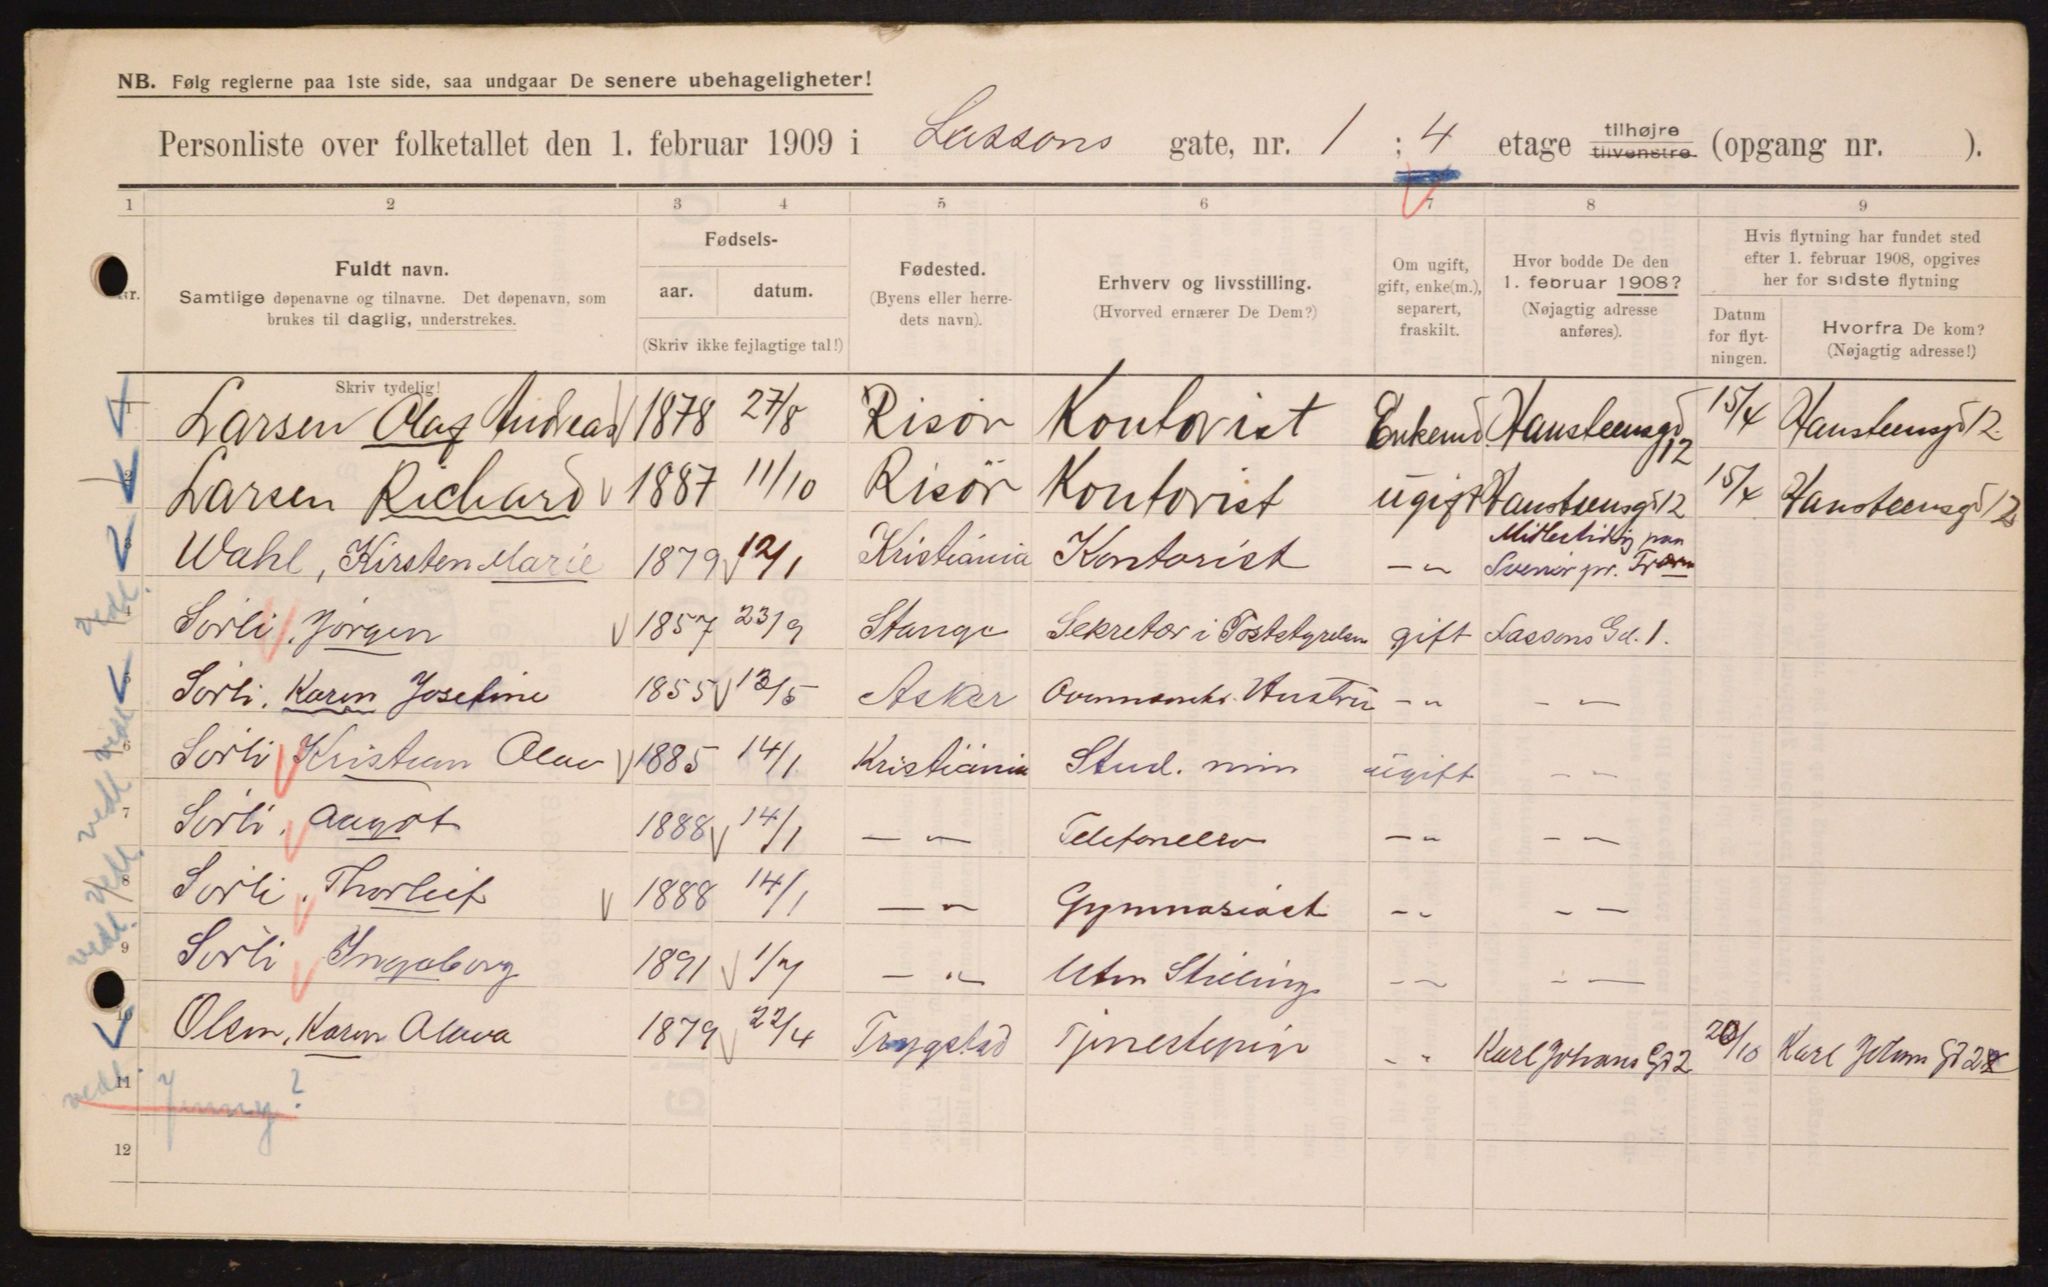 NB. Følg reglerne paa 1ste side, saa undgaar De senere ubehageligheter!
Personliste over folketallet den 1. februar 1909 i Lassons gate, nr. 1 ; 4 etage tilhøjre tilvenstre (opgang nr. ).
1 2 3 4 5 6 7 8 9
Nr.
Fuldt navn.
Samtlige døpenavne og tilnavne. Det døpenavn, som
brukes til daglig, understrekes.
Skriv tydelig!
Fødsels-
aar. datum.
(Skriv ikke fejlagtige tal!)
Fødested.
(Byens eller herre-
dets navn).
Erhverv og livsstilling.
(Hvorved ernærer De Dem?)
Om ugift,
gift, enke(m.),
separert,
fraskilt.
Hvor bodde De den
1. februar 1908?
(Nøjagtig adresse
anføres).
Hvis flytning har fundet sted
efter 1. februar 1908, opgives
her for sidste flytning
Datum
for flyt-
ningen.
Hvorfra De kom?
(Nøjagtig adresse!)
1 Larsen Olaf Andreas 1878 27/8 Risør Kontorist Enkem. Hansteensgd 12 15/4 Hansteensgd 12
2 Larsen Richard 1887 11/10 Risør Kontorist ugift Hansteensgd 12 15/4 Hansteensgd 12
3 Wahl, Kirsten Marie 1879 12/1 Kristiania Kontorist -"- Midlertidig paa
Svenør pr. Fredr.
4 Sørli, Jørgen 1857 23/9 Stange Sekretær i Poststyrelsen gift Lassons Gd. 1.
5 Sørli, Karen Josefine 1855 13/5 Asker Ovennævntes Hustru -"- -"-
6 Sørli Kristian Olav 1885 14/1 Kristiania Stud. min ugift -"-
7 Sørli, Aagot 1888 14/1 -"- Telefonelev -"- -"-
8 Sørli, Thorleif 1888 14/1 -"- Gymnasiast -"- -"-
9 Sørli Ingeborg 1891 1/7 -"- Uten Stilling -"- -"-
10 Olsen, Karen Olava 1879 22/4 Trygstad Tjenestepige -"- Karl Johans Gd 2 20/10 Karl Johans Gd 2
11 Jenny?
12
vedl. vedl. vedl. vedl. vedl. vedl.